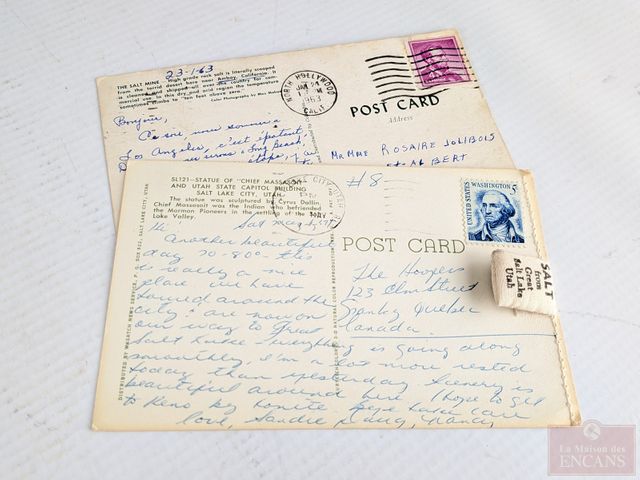 23-1-63
THE SALT MINE High grade rock salt is literally scooped
from the torrid desert here near Amboy, California. It
is cleaned and shipped all over the country for com-
mercial use. In this dry and arid region the temperature
sometimes climbs to "ten feet above zero."
Color Photography by Max
NORTH HOLLYWOOD
JAN 24
PM
1963
CALIF.
POST CARD
Address
Bonjour,
Ce soir, nous sommes à
Los Angeles, c'est épatant,
Long Beach
MR MME ROSAIRE JOLIBOIS
ALBERT
SL121-STATUE OF "CHIEF MASSASOIT"
AND UTAH STATE CAPITOL BUILDING
SALT LAKE CITY, UTAH
The statue was sculptured by Cyrus Dallin.
Chief Massasoit was the Indian who befriended
the Mormon Pioneers in the settling of the
Lake Valley.
CITY, UTAH
MAY
#8
UNITED STATES
WASHINGTON 5c
POST CARD
SALT
from
Great
Salt Lake
Utah
DISTRIBUTED BY WASATCH NEWS SERVICE, SALT LAKE CITY, UTAH
Sat May
Hi
Another beautiful
day 70-80° this
is really a nice
place we have
toured around the
city & are now on
our way to Great
Salt Lake everything is going along
smoothly, I'm a lot more rested
today than yesterday scenery is
beautiful around here I hope to get
to Reno by tonite Bye take care
love, Sandie & Doug, Nancy
The Hoopers
123 Elm Street
Granby Quebec
Canada.
La Maison des
ENCANS